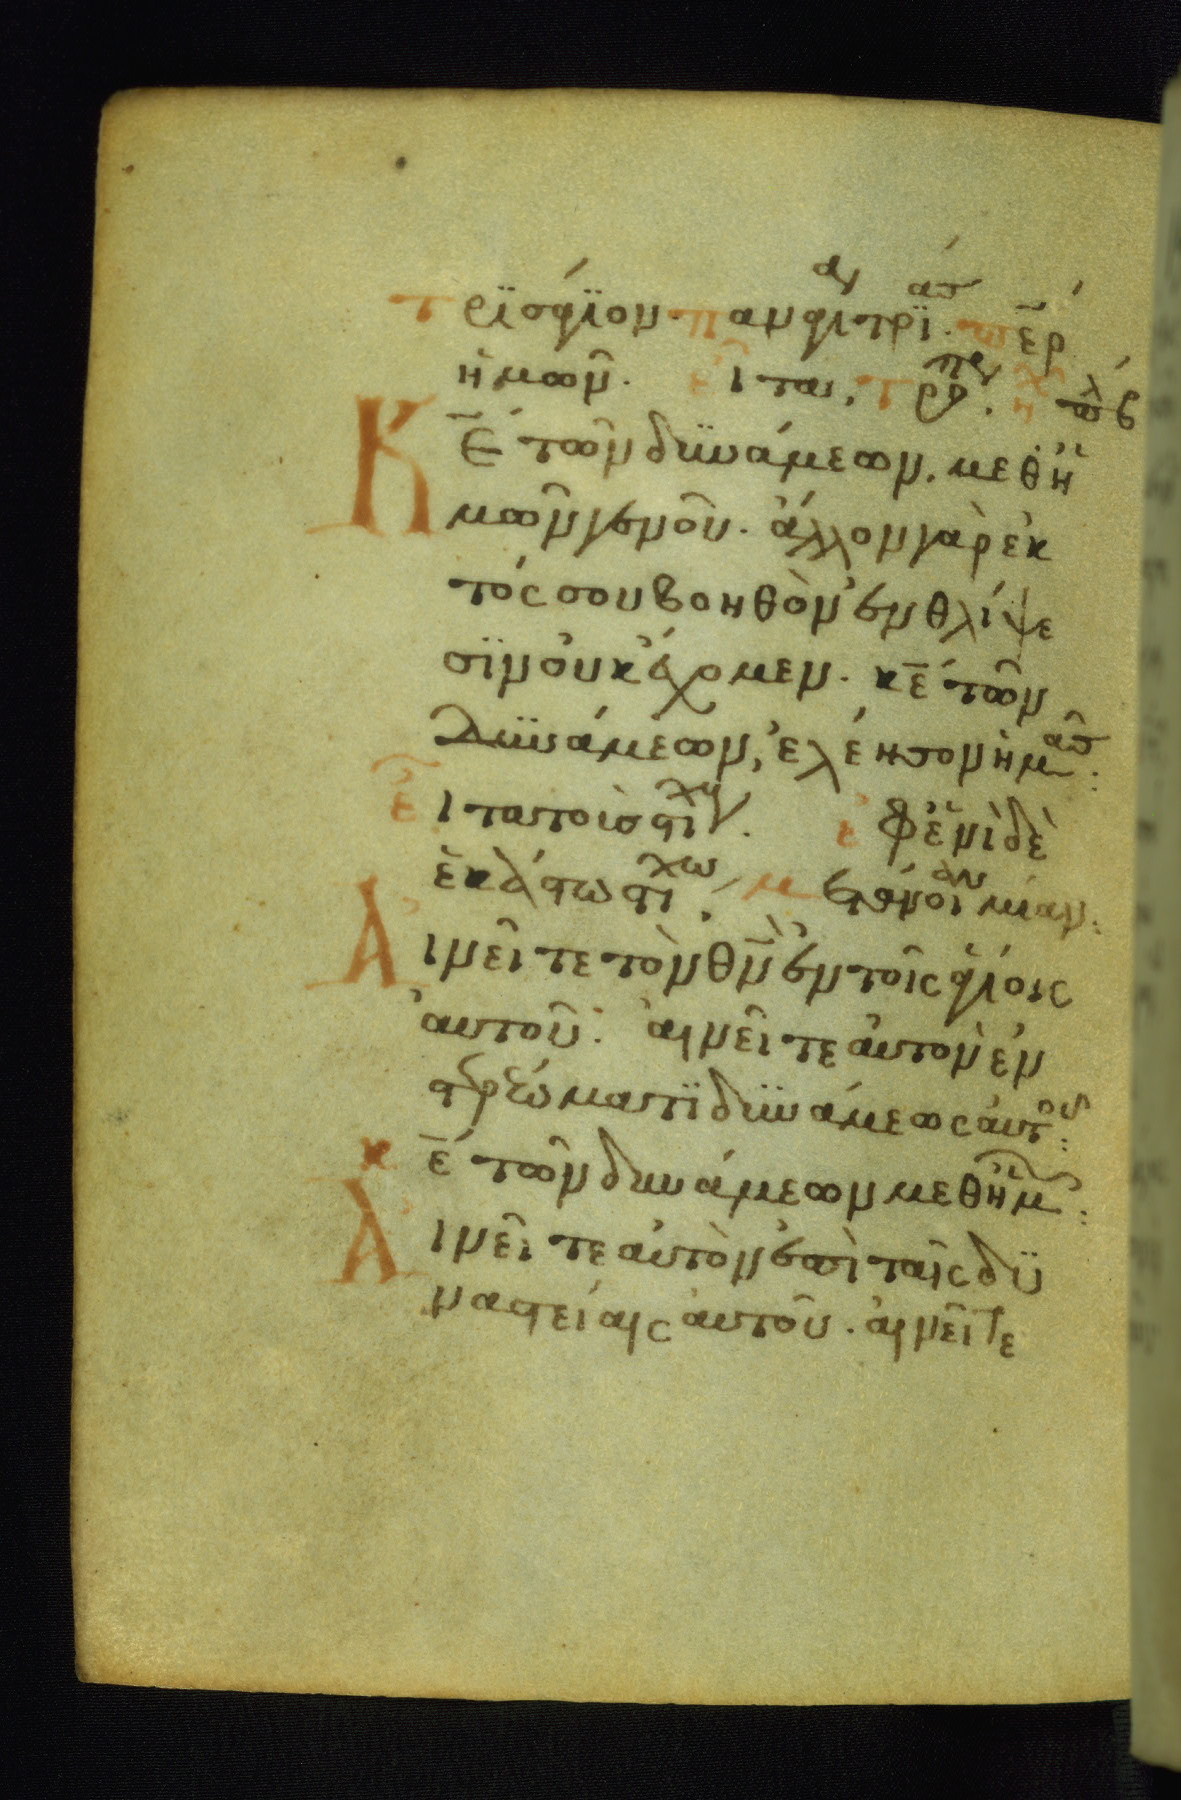 τρϊσάγϊον. παναγία τρϊ. π̅ε̅ρ
ἡμῶν. εἶτα,
Κ̅Ε̅ τῶν δυϋνάμεων, μεθ ἡ
μῶν γενοῦ. ἄλλον γὰρ ἐκ
τός σου βοηθὸν ἐν θλίψε
σϊν οὐκ ἔχομεν. κ̅ε̅ τῶν
δυϋνάμεων, ἐλέησον ἡμᾶς:
εἶτα το ἰστιχ. εἰ δὲ
Αἰνεῖτε τὸν θ̅ν̅ ἐν τοῖς ἁγίοις
ἀυτοῦ. ἀινεῖτε ἀυτὸν ἐν
στερεώματϊ δυϋνάμεως ἀυτοῦ:
κ̅ε̅ τῶν δυνάμεων μεθ ἡμ:
Αἰνεῖτε ἀυτὸν ἐπὶ ταῖς δϋ
ναστείαις ἀυτοῦ. ἀινεῖτε